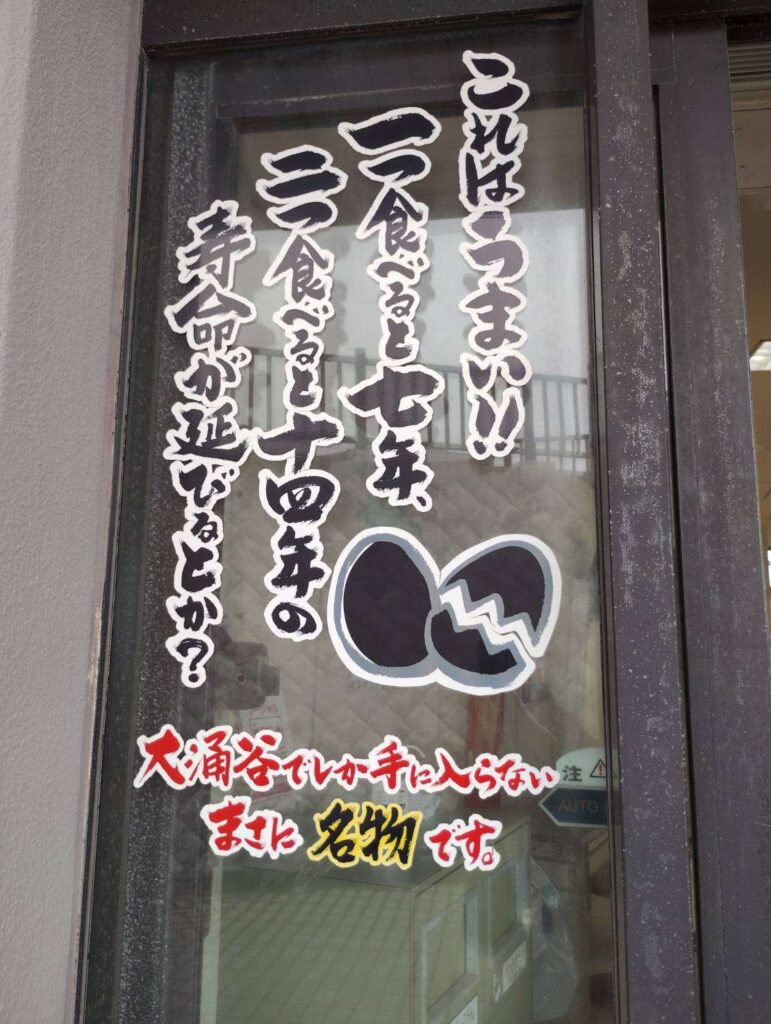 これはうまい!!
一つ食べると七年、
二つ食べると十四年の
寿命が延びるとか?
大涌谷でしか手に入らない
まさに名物です。
注
AUTO